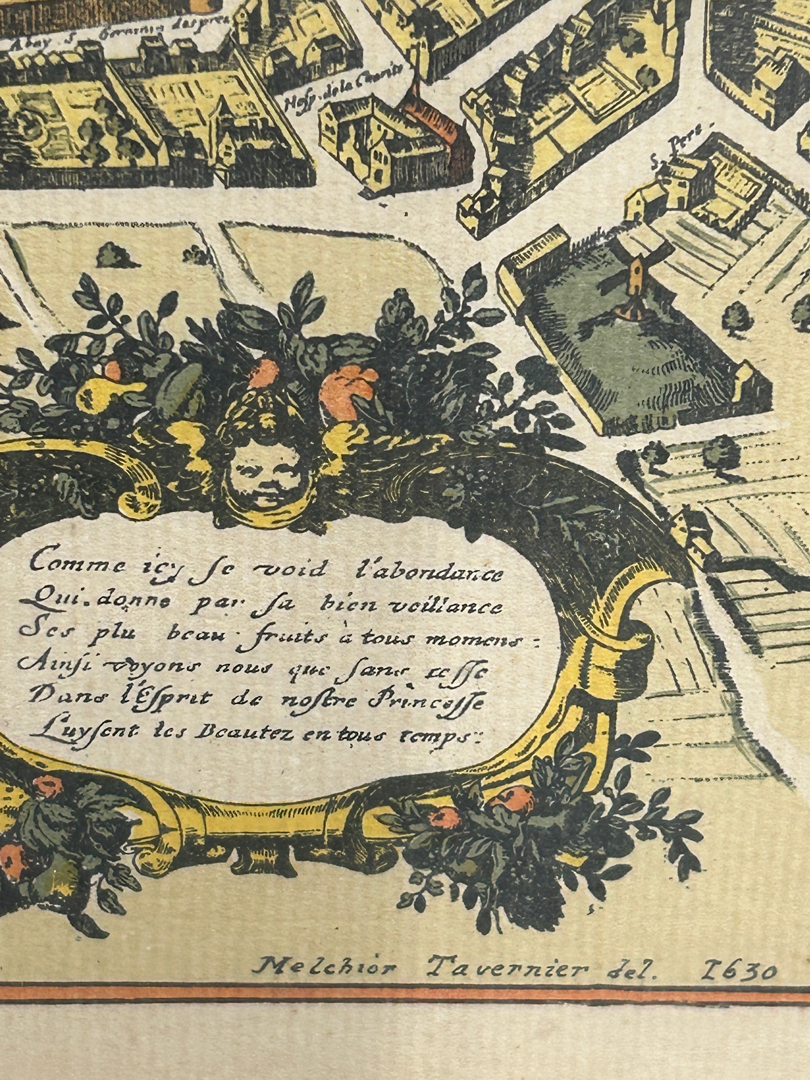 Abay. S. Germain des pres
Hosp. de la Charite
S. Pere.
Comme icy se void l'abondance
Qui donne par sa bien veillance
Ses plu beau fruits à tous momens :
Ainsi voyons nous que sans cesse
Dans l'Esprit de nostre Princesse
Luysent les Beautez en tous temps :
Melchior Tavernier del. 1630